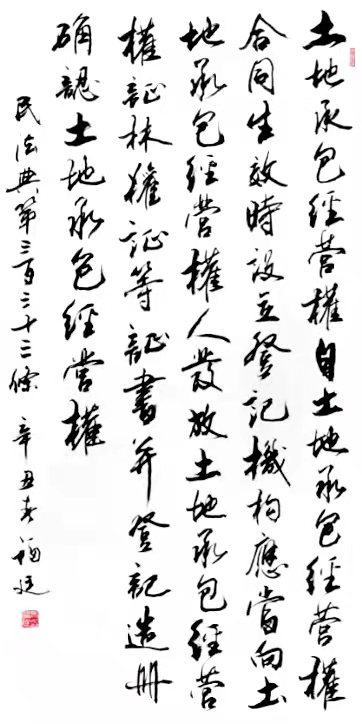 土地承包經營權自土地承包經營權
合同生效時設立登記機構應當向土
地承包經營權人發放土地承包經營
權証林權証等証書并登記造冊
确認土地承包經營權
民法典第三百三十三條 辛丑春